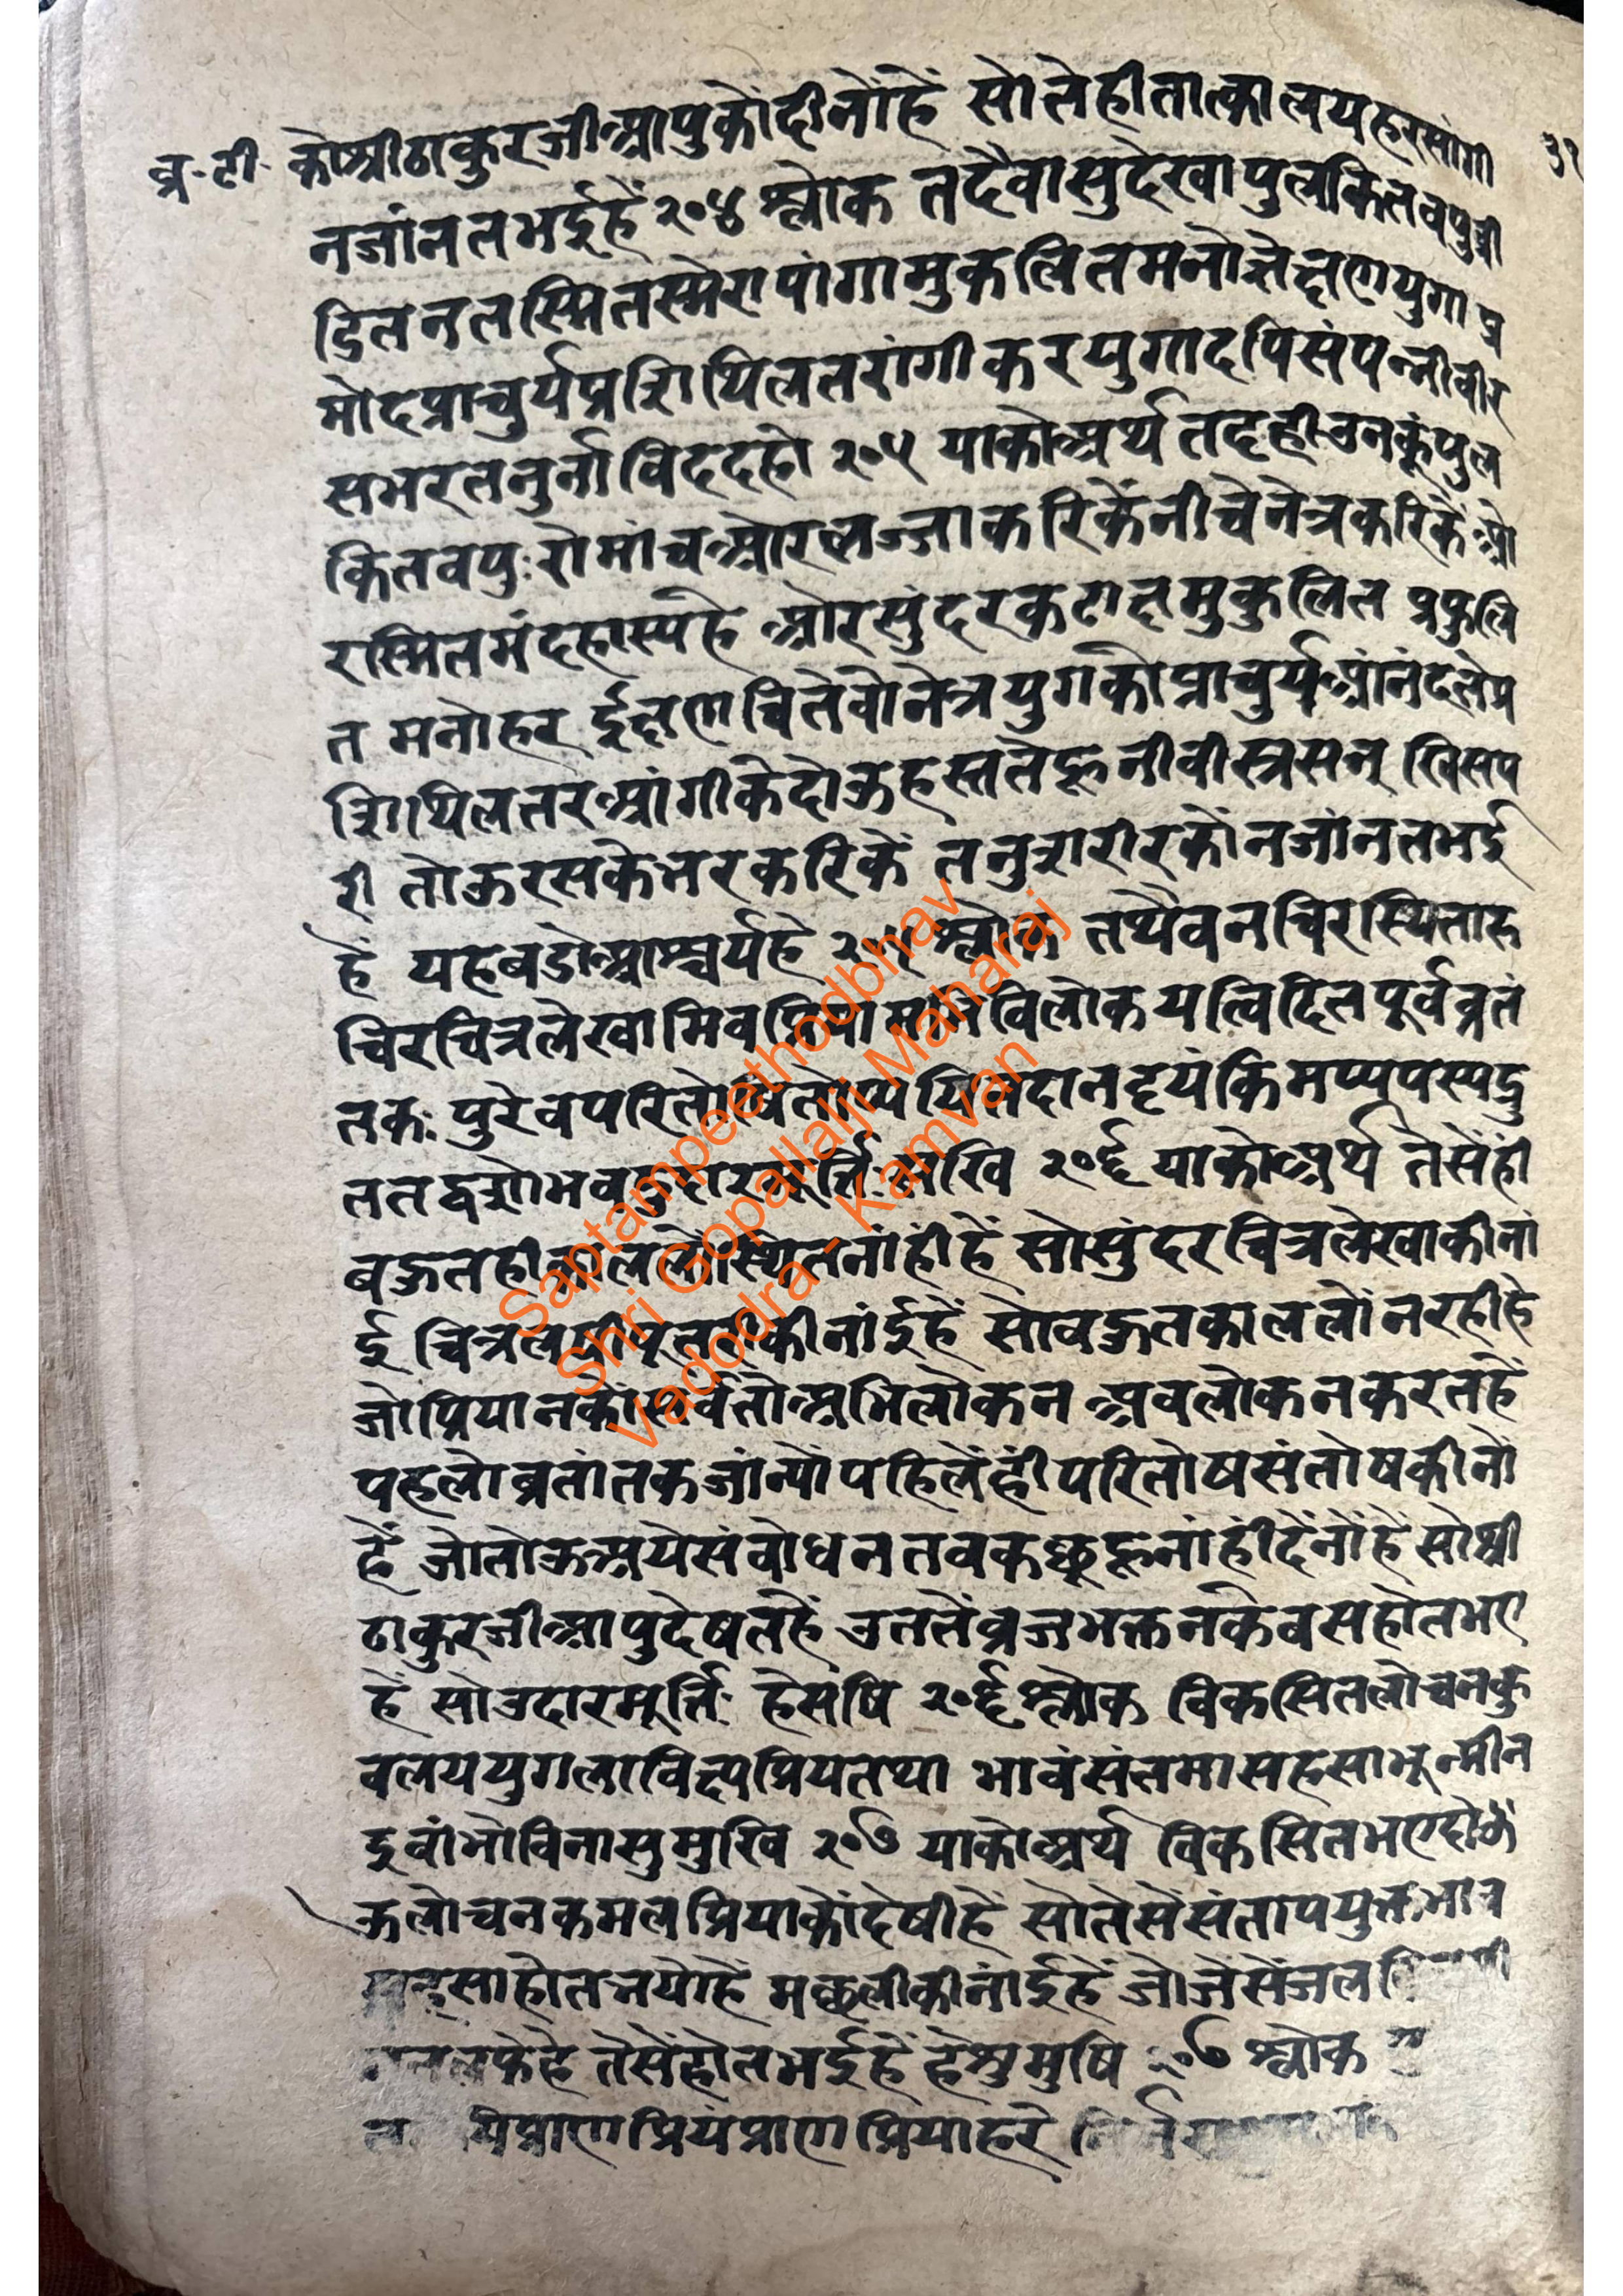 व्र. टी. कोश्रीठाकुरजीआपुकोंदीनोंहें सोलेहीतात्कालयहरसांगी ३१
नजांनतभईहें २०४ श्लोक तदैवासुदेरवापुलकितवपुर्व्री
डितनतस्मितस्मेरापांगामुकलितमनोज्ञेक्षणयुगा प्र
मोदप्राचुर्यप्रशिथिलतरांगीकरयुगादपिसंपन्नीवीर
सभरतनुर्नाविददहो २०५ याकोअर्थ तदहीउनकूंपुल
कितवपुःरोमांचओरलज्जाकरिकेंनीचेनेत्रकरिकेंओ
रस्मितमंदहास्यहे ओरसुंदरकटाक्षमुकुलित प्रफुलि
त मनोहर ईक्षणचितेवोनेत्रयुगकोप्राचुर्यआंनंदतेप्र
शिथिलतरआंगीकेदोऊहस्ततेहूनीवीस्त्रसन् खिसप
री तोऊरसकेभरकरिकें तनुशरीरकोंनजांनतभई
हें यहबडोआश्चर्यहे २०५ श्लोक तथैवनचिरस्थिताह
चिरचित्रलेखामिवप्रिया विलोकयत्विदितपूर्वव्रतं
तकः पुरेवपरितो दानदृयंकिमप्यपस्पद्रु
ततद्वशोभव मूर्त्तिः सखि २०६ याकोअर्थ तैसेंहीं
बऊतहीकाललोंस्थितनांहींहें सोसुंदरचित्रलेखाकीनां
ई चित्र कीनांईहें सोबऊतकाललोंनरहीहे
जोप्रियानकोंसर्वतोअभिलोकन अवलोकनकरतहें
पहलोव्रतांतकजांन्योंपहिलेंहींपरितोषसंतोषकीनों
हें जोतोऊअयेसंबोधनतबकछूहूनांहींदेंनोंहें सोश्री
ठाकुरजीआपुदेषतहें उततेंव्रजभक्तनकेबसहोतभए
हें सोउदारमूर्त्तिः हेसषि २०६ श्लोक विकसितलोचनकु
वलययुगलाविक्ष्यप्रियतथा भावंसंतमासहसाभून्मीन
इवांभोविनासुमुखि २०७ याकोअर्थ विकसितभएदोऊ
ऊलोचनकमलप्रियाकोंदेषीहें सोतेसेंसंतापयुक्तभाव
साहोतभयोहें मछलीकीनांईहें जोजेसेंजल
तलफेहै तेसेंहोतभईहें हेसुमुषि २०७ श्लोक
प्राणप्रियंप्राणप्रियाहरे
Saptampeethodbhav
Shri Gopallalji Maharaj
Vadodra - Kamvan